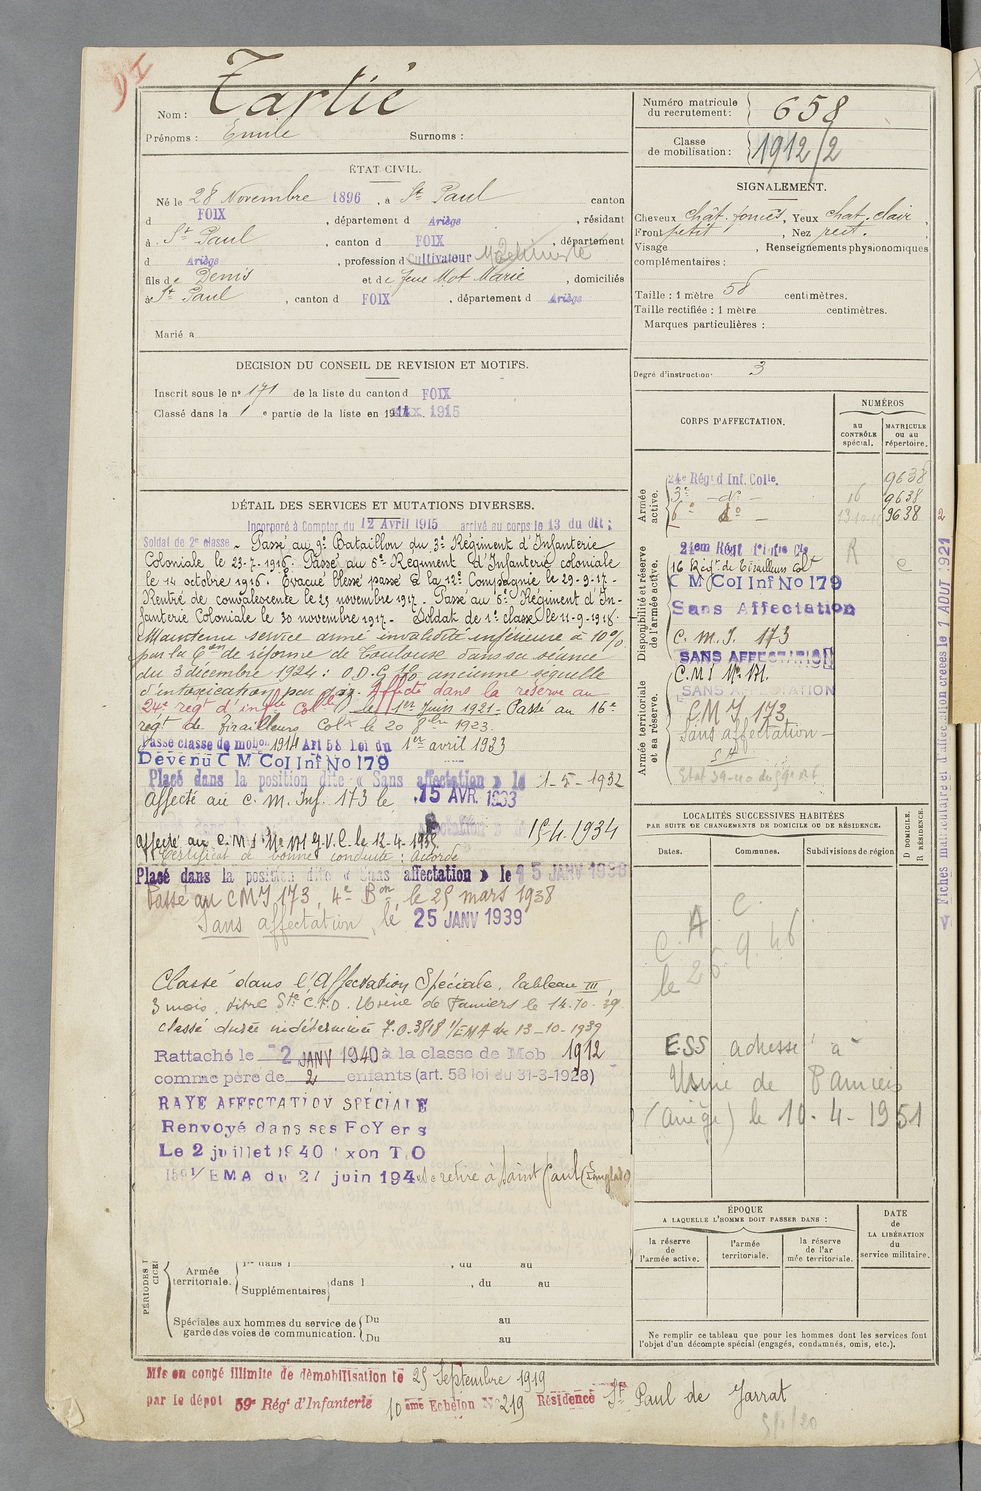 Nom : Tartié
Prénoms : Emile Surnoms :
ÉTAT CIVIL.
Né le 28 Novembre 1896, à St Paul canton
d FOIX, département d Ariège, résidant
à St Paul, canton d FOIX, département
d Ariège, profession d cultivateur
fils de Denis et de Jene Mot Marie, domiciliés
à St Paul, canton d FOIX, département d Ariège
Marié à
DECISION DU CONSEIL DE REVISION ET MOTIFS.
Inscrit sous le n° 171 de la liste du canton d FOIX
Classé dans la 1 e partie de la liste en 19 1915
DÉTAIL DES SERVICES ET MUTATIONS DIVERSES.
Incorporé à Compter du 12 Avril 1915 arrivé au corps le 13 du dit ;
Soldat de 2e classe - Passé au 9e Bataillon du 3e Régiment d'Infanterie
Coloniale le 23-7-1916. Passé au 5e Régiment d'Infanterie coloniale
le 14 octobre 1916. Evacué blessé passé à la 12e Compagnie le 29-9-17-
Rentré de convalescente le 25 novembre 1917 - Passé au 6e Régiment d'In-
fanterie Coloniale le 30 novembre 1917 - Soldat de 1e classe le 11-9-1918.
Maintenu service armé invalidité inférieure à 10%
par la Con de réforme de Toulouse dans sa séance
du 3 décembre 1924 : ancienne séquelle
d'intoxication par gaz. Affecté dans la réserve au
24e régt d'infrie Colle le 1er Juin 1921 - Passé au 16e
régt de Tirailleurs Colx le 20 8bre 1923
Passé classe de mobon 1914 Art 58 Loi du 1er avril 1923
Devenu C M Col Inf No 179
Placé dans la position dite « Sans affectation » le 1-5-1932
Affecté au C. m. Inf. 173 le 15 AVR. 1933
15.4.1934
Affecté au C.M.I No 171 le 12-4-1935
Certificat de bonne conduite : accordé
Placé dans la position dite « Sans affectation » le 15 JANV 1938
Passé au CMI 173, 4e Bon, le 25 mars 1938
Sans affectation, le 25 JANV 1939
Classé dans l'Affectation Spéciale, tableau III,
3 mois, titre Sté C.F.D. Usine de Pamiers le 14-10-39
classé durée indéterminée 1/EMA du 13-10-1939
Rattaché le 2 JANV 1940 à la classe de Mob 1912
comme père de 2 enfants (art. 58 loi du 31-3-1928)
RAYE AFFECTATION SPECIALE
Renvoyé dans ses FoYers
Le 2 juillet 1940 xon T,O
1/EMA du 27 juin 194 se retire à Saint Paul
PÉRIODES
Armée territoriale.
dans l , du au
Supplémentaires dans l , du au
Spéciales aux hommes du service de garde des voies de communication.
Du au
Du au
Mis en congé illimité de démobilisation le 25 Septembre 1919
par le dépôt 59e Régt d'Infanterie 10 ème Echelon N° 219 Résidence St Paul de Jarrat
Numéro matricule du recrutement : 658
Classe de mobilisation : 1912/2
SIGNALEMENT.
Cheveux chât. foncés, Yeux chat. clair,
Front petit, Nez rect.
Visage , Renseignements physionomiques
complémentaires :
Taille : 1 mètre 58 centimètres.
Taille rectifiée : 1 mètre centimètres.
Marques particulières :
Degré d'instruction : 3
CORPS D'AFFECTATION.
NUMÉROS
au CONTRÔLE spécial.
MATRICULE ou au répertoire.
Armée active.
24e Régt d Inf. Colle. 9638
3e - do - 16 9638
6e do - 9638
Disponibilité et réserve de l'armée active.
24em Régt d'Infie Cle R
16 Régt de Tirailleurs Colx
C M Col Inf No 179
Sans Affectation
C. m. I. 173
SANS AFFECTATION
Armée territoriale et sa réserve.
C.M I No 171.
SANS AFFECTATION
C M I 173
Sans affectation -
LOCALITÉS SUCCESSIVES HABITÉES
PAR SUITE DE CHANGEMENTS DE DOMICILE OU DE RÉSIDENCE.
Dates. Communes. Subdivisions de région
D DOMICILE. R RÉSIDENCE.
C. A. C.
le 26.9.46
ESS adresse à
Usine de Pamiers
(Ariège) le 10-4-1951
ÉPOQUE
A LAQUELLE L'HOMME DOIT PASSER DANS :
la réserve de l'armée active.
l'armée territoriale.
la réserve de l'armée territoriale.
DATE de LA LIBÉRATION du service militaire.
Ne remplir ce tableau que pour les hommes dont les services font
l'objet d'un décompte spécial (engagés, condamnés, omis, etc.).
Fiches matriculaire et d'affectation créées le 1 AOUT 1921